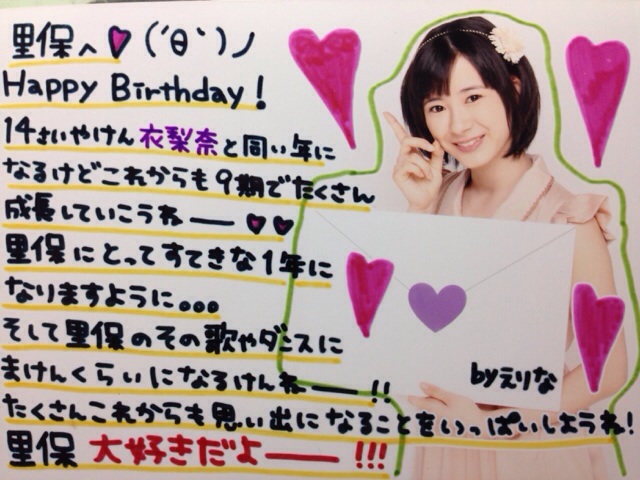 里保へ♥(´θ`)ノ
Happy Birthday!
14さいやけん衣梨奈と同い年に
なるけどこれからも9期でたくさん
成長していこうねー♥♥
里保にとってすてきな1年に
なりますように。。。
そして里保のその歌やダンスに
まけんくらいになるけんねー!!
たくさんこれからも思い出になることをいっぱいしようね!
里保 大好きだよー!!!
byえりな